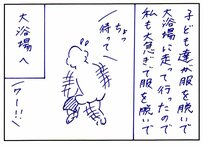 子ども達が服を脱いで
大浴場に走って行ったので
私も大急ぎで服を脱いで
ちょっ
待って
大浴場へ
ワー!!